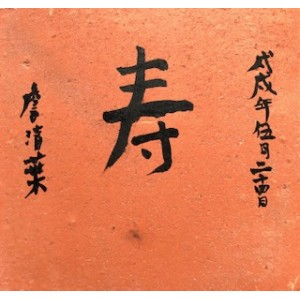 戊戌年伍月二十四日
寿
李清葉